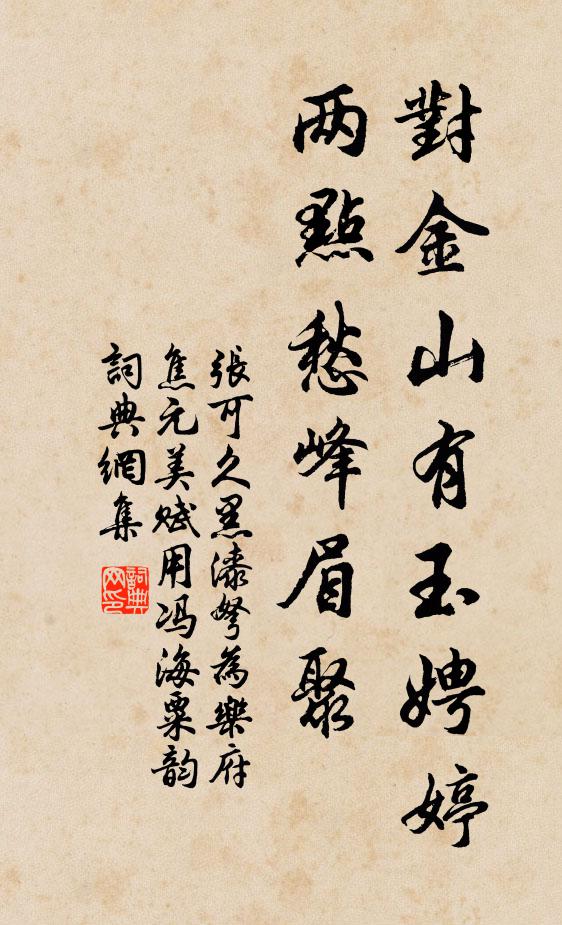 對金山有玉娉婷
两點愁峰眉聚
張可久黑漆弩為樂府
焦元美赋用冯海粟韵
詞典網集
詞典
网印